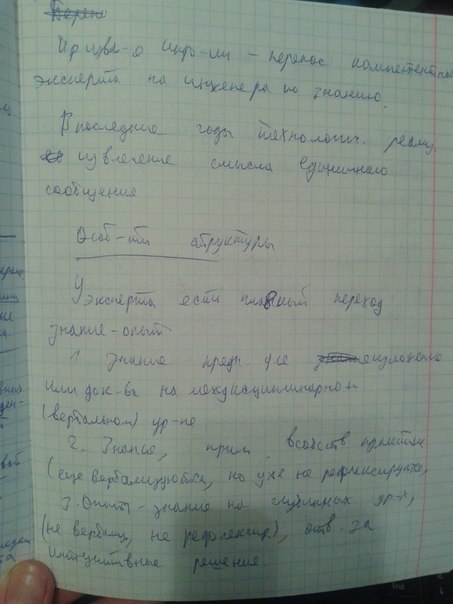 эксперта на инженера по знанию.
В последние годы технологич. реализ
извлечение смысла единичного
сообщения
Особ-ти структуры
У эксперта есть плавный переход
знание-опыт
1. Знание предн. для изложения
или док-ва на междисциплинарном
(вербальном) ур-не
2. Знание, прим. в собств практике
(еще вербализуются, но уже не рефлексируются,
3. Опыт - знание на глубинных ур-х,
(не вербализ, не рефлексир), отв. за
интуитивные решения